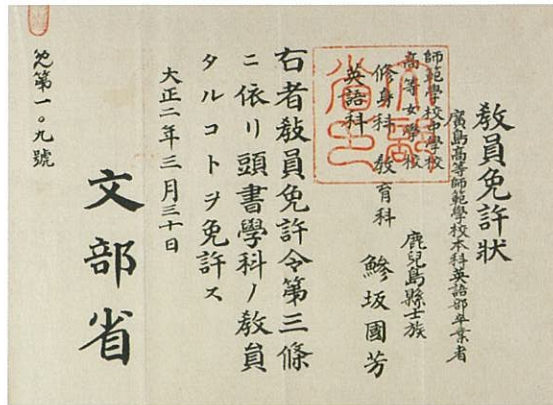 教員免許状
廣島高等師範學校本科英語部卒業者
鹿兒島縣士族
鰺坂國芳
師範學校中學校
高等女學校
修身科 教育科
英語科
右者教員免許令第三條
ニ依リ頭書學科ノ教員
タルコトヲ免許ス
大正二年三月三十日
文部省
免第一〇九號